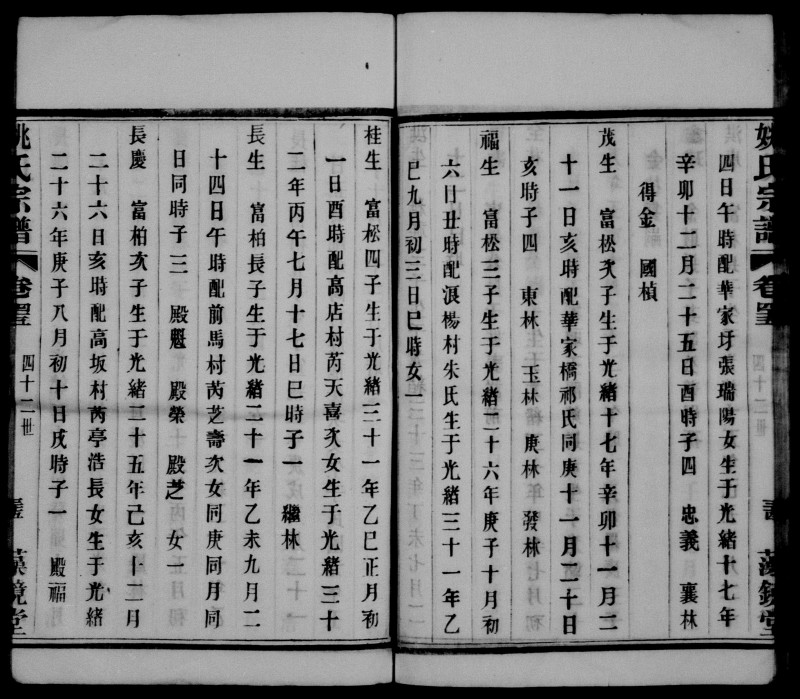 姚氏宗譜
卷
四十二世
藻鏡堂
四日午時配華家圩張瑞陽女生于光緒十七年
辛卯十二月二十五日酉時子四 忠義 襄林
得金 國楨
茂生 富松次子生于光緒十七年辛卯十一月二
十一日亥時配華家橋祁氏同庚十一月二十日
亥時子四 東林 玉林 庚林 發林
福生 富松三子生于光緒二十六年庚子十月初
六日丑時配浪楊村朱氏生于光緒三十一年乙
巳九月初三日巳時女一
桂生 富松四子生于光緒三十一年乙巳正月初
一日酉時配高店村芮天喜次女生于光緒三十
二年丙午七月十七日巳時子一 繼林
長生 富柏長子生于光緒二十一年乙未九月二
十四日午時配前馬村芮芝壽次女同庚同月同
日同時子三 殿魁 殿榮 殿芝 女一
長慶 富柏次子生于光緒二十五年己亥十二月
二十六日亥時配高坂村芮亭浩長女生于光緒
二十六年庚子八月初十日戌時子一 殿福
姚氏宗譜
卷
四十二世
藻鏡堂